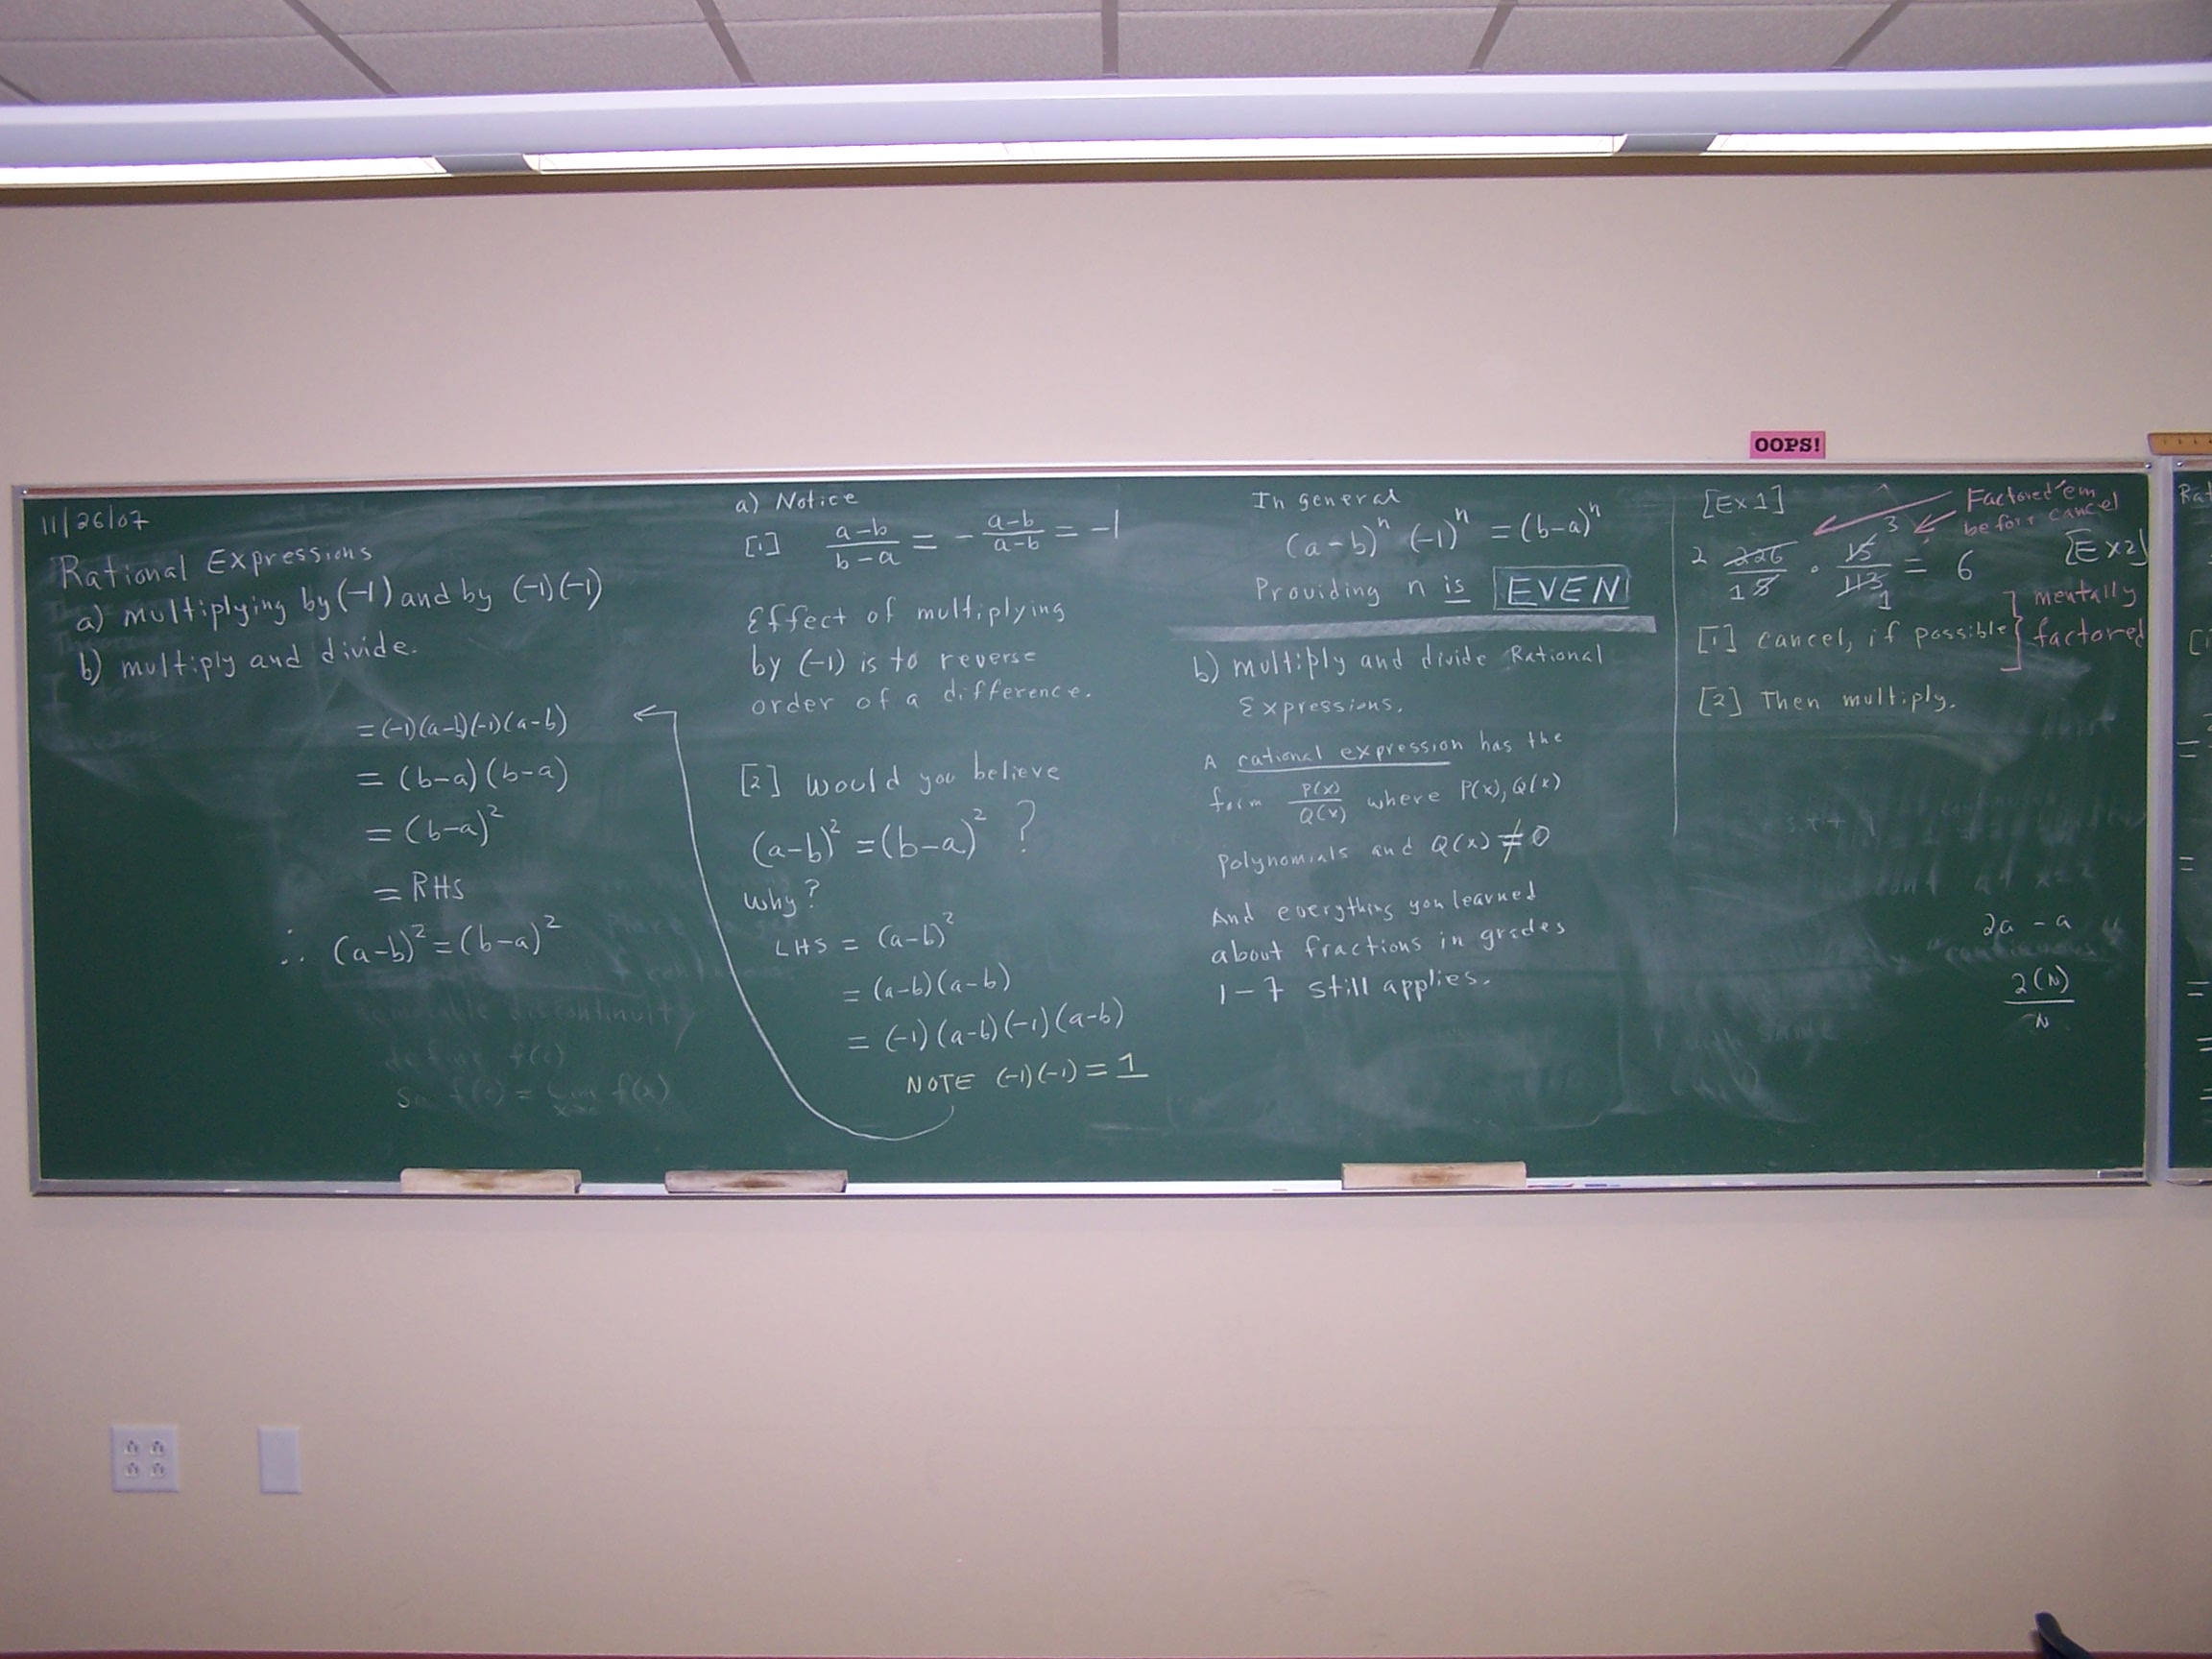 OOPS!
11/26/07
Rational Expressions
a) multiplying by (-1) and by (-1)(-1)
b) multiply and divide.
= (-1)(a-b)(-1)(a-b)
= (b-a)(b-a)
= (b-a)²
= RHS
∴ (a-b)² = (b-a)²
define f(c)
so f(c) = lim f(x)
a) Notice
[1] (a-b)/(b-a) = -(a-b)/(a-b) = -1
Effect of multiplying
by (-1) is to reverse
order of a difference.
[2] Would you believe
(a-b)² = (b-a)² ?
Why?
LHS = (a-b)²
= (a-b)(a-b)
= (-1)(a-b)(-1)(a-b)
NOTE (-1)(-1) = 1
In general
(a-b)ⁿ (-1)ⁿ = (b-a)ⁿ
Providing n is EVEN
b) multiply and divide Rational
Expressions.
A rational expression has the
form P(x)/Q(x) where P(x), Q(x)
polynomials and Q(x) ≠ 0
And everything you learned
about fractions in grades
1-7 still applies.
[Ex 1]
Factored 'em
before cancel
2 226/15 · 15/113 3 = 6
1 1
[Ex 2]
[1] cancel, if possible
mentally
factored
[2] Then multiply.
2a - a
"continuous"
2(N)
N
Rat